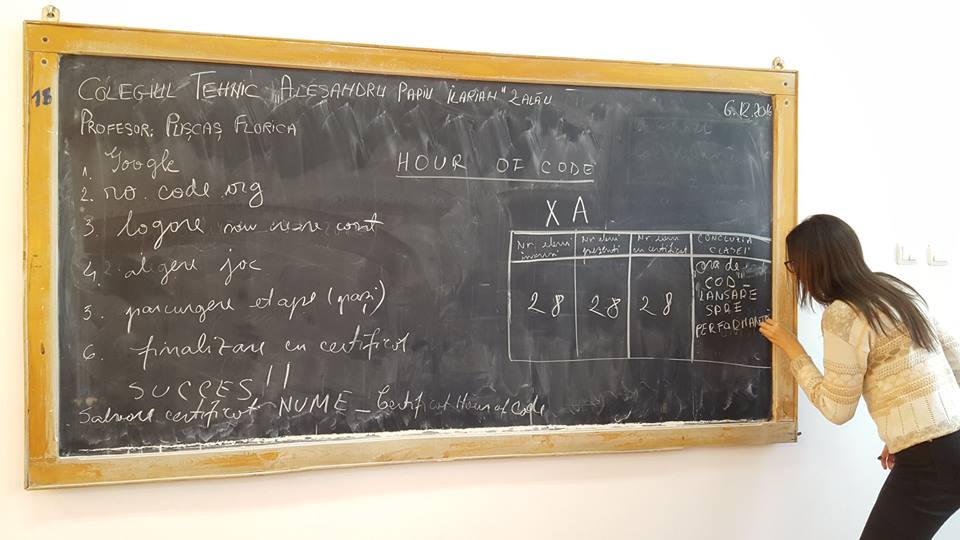 18
COLEGIUL TEHNIC „ALESANDRU PAPIU ILARIAN" ZALĂU
6.12.2016
PROFESOR: PUȘCAȘ FLORICA
HOUR OF CODE
1. Google
2. ro.code.org
3. logare sau creare cont
4. alegere joc
5. parcurgere etape (pași)
6. finalizare cu certificat
SUCCES!!
Salvare certificat NUME - Certificat Hour of Code
X A
Nr. elevi înscriși
Nr. elevi prezenți
Nr. elevi cu certificat
CONCLUZIA CLASEI
28
28
28
„ORA DE
COD"-
LANSARE
SPRE
PERFORMANȚĂ